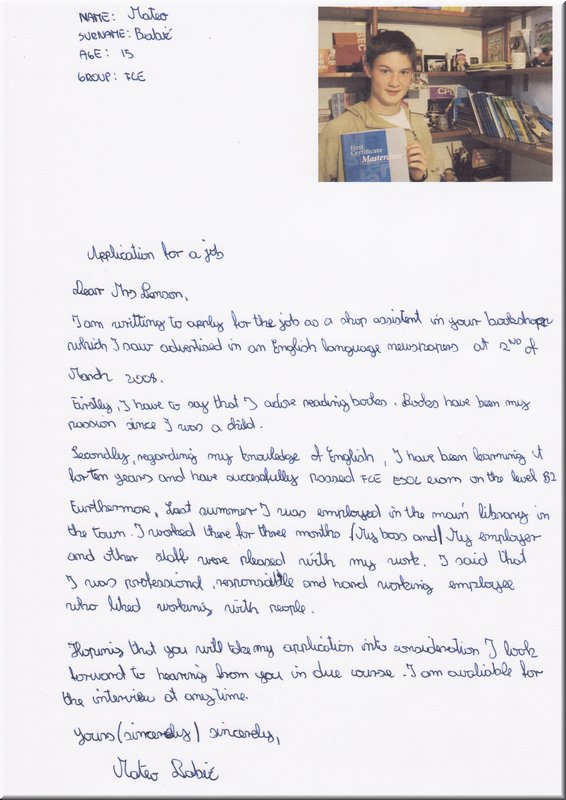 NAME: Mateo
SURNAME: Babić
AGE: 15
GROUP: FCE
BEC
CPE
First
Certificate
Masterclass
Application for a job
Dear Mrs Benson,
I am writting to apply for the job as a shop assistent in your bookshop
which I saw advertised in an English language newspapers at 2ND of
March 2008.
Firstly, I have to say that I adore reading books. Books have been my
passion since I was a child.
Secondly, regarding my knowledge of English, I have been learning it
for ten years and have successfully passed FCE ESOL exam on the level B2
Furthermore, last summer I was employed in the main library in
the town. I worked there for three months (My boss and) My employer
and other staff were pleased with my work. I said that
I was professional, responsible and hard working employee
who liked working with people.
Hoping that you will take my application into consideration I look
forward to hearing from you in due course. I am avaliable for
the interview at any time.
Yours (sincerely) sincerely,
Mateo Babić